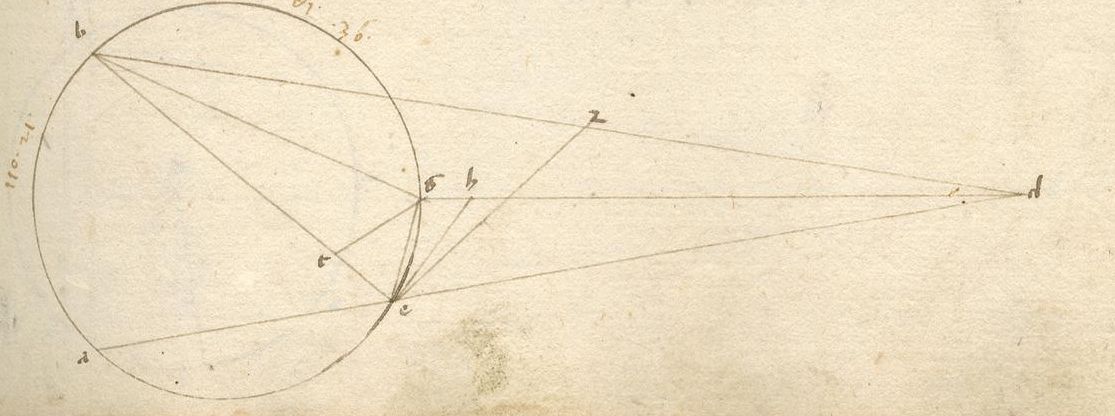 b
36.
110·21·
z
h
d
t
e
a